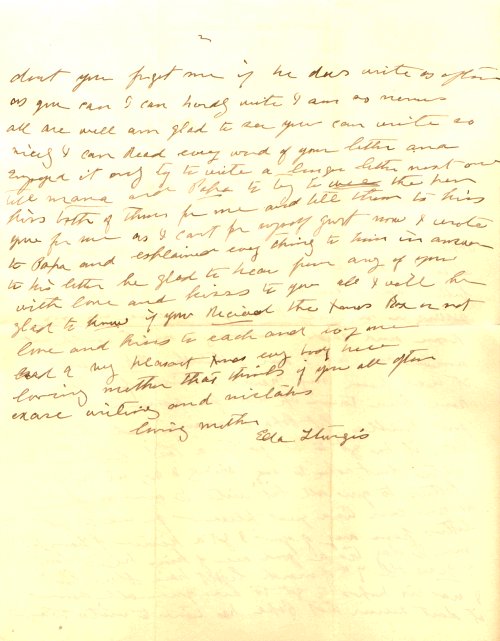 2
dont you forget me if he does write as often
as you can I can hardly write I am so nervous
all are well am glad to see you can write so
nicely I can Read every word of your letter and
Enjoyed it only try to write a longer letter next one
tell mama and Papa to try to the
kiss both of them for me and tell them to kiss
you for me as I cant for myself just now I wrote
to Papa and explained every thing to him in answer
to his letter be glad to hear from any of you
with love and kisses to you all I will be
glad to know if you Recieved the Xmas Box or not
love and kisses to each and
a very pleasant Xmas every body here
loving mother that thinks of you all often
excuse writing and mistakes
loving mother
Eda Sturgis